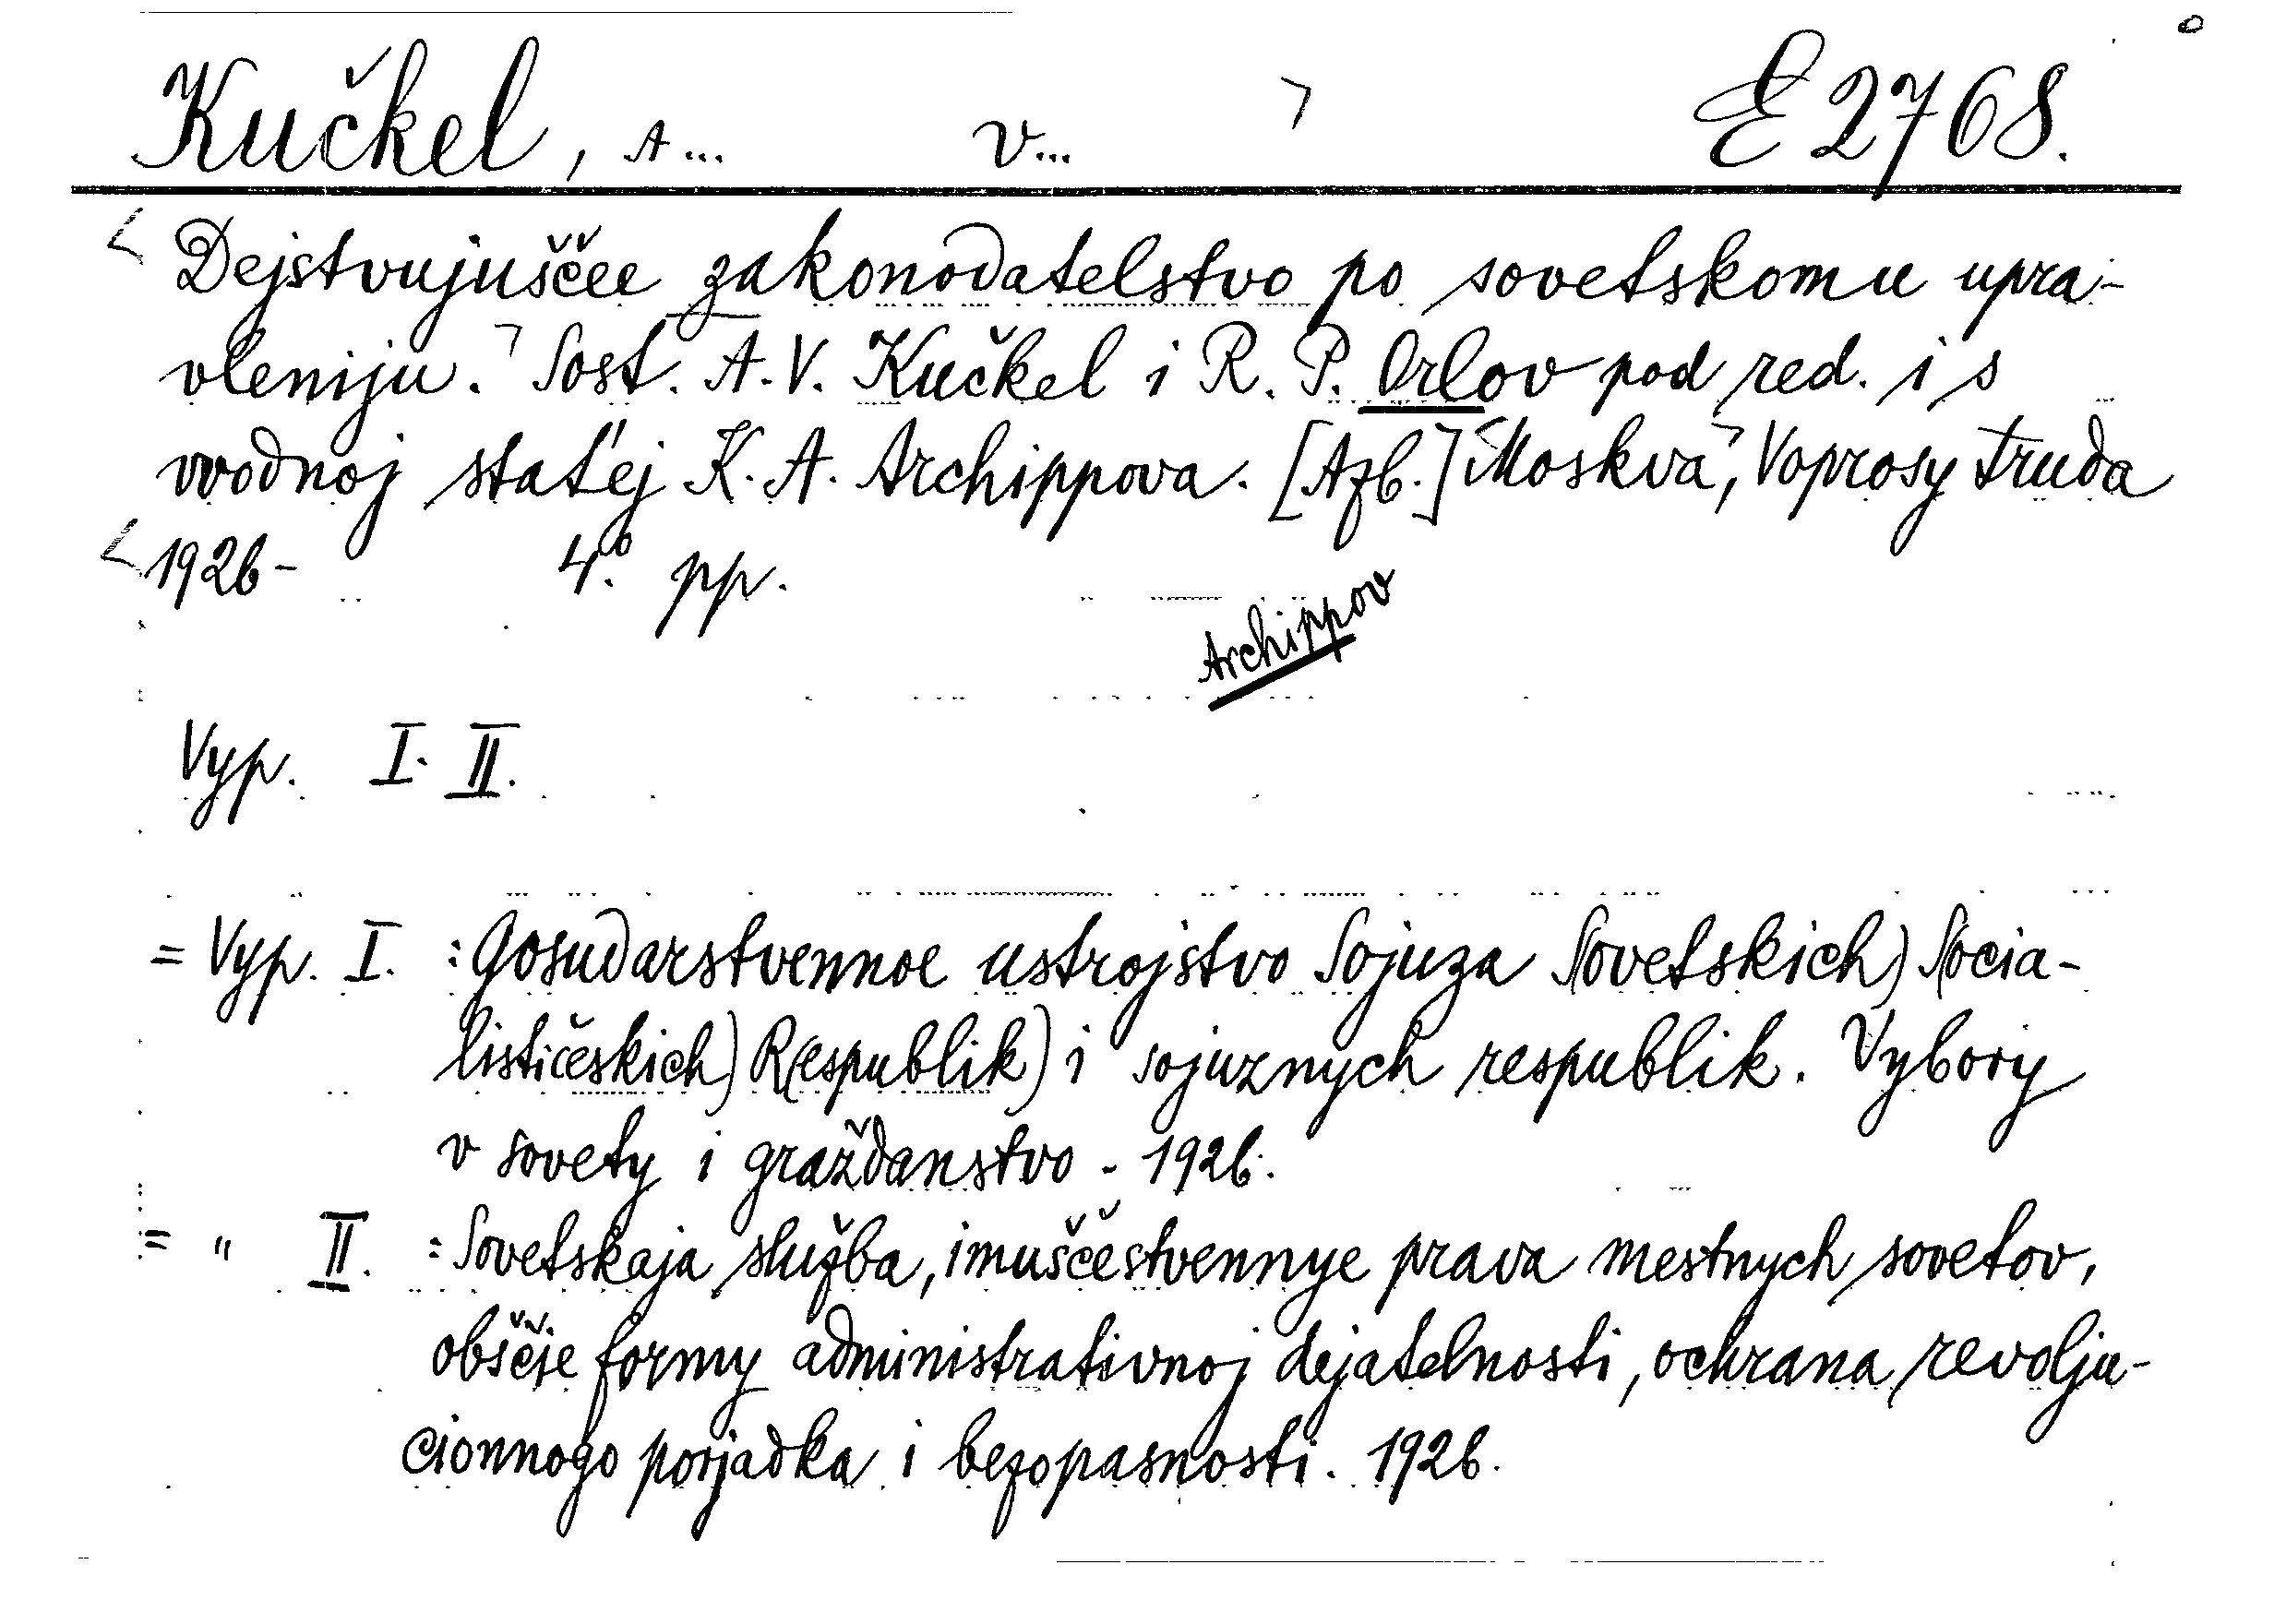 Kučkel, A... V... ⌝ E 2768.
< Dejstvujuščee zakonodatelstvo po sovetskomu upra-
vleniju. ⌝ Sost. A. V. Kučkel i R. P. Orlov pod red. i s
vvodnoj stat'ej K. A. Archippova. [Azb.] Moskva, ⌝ Voprosy truda
< 1926- 4°. pp.
Archippov
Vyp. I. II.
= Vyp. I. : Gosudarstvennoe ustrojstvo Sojuza S(ovetskich) S(ocia-
lističeskich) R(espublik) i sojuznych respublik. Vybory
v sovety i graždanstvo. 1926.
= " II. : Sovetskaja služba, imuščestvennye prava mestnych sovetov,
obščie formy administrativnoj dejatelnosti, ochrana revolju-
cionnogo porjadka i bezopasnosti. 1926.